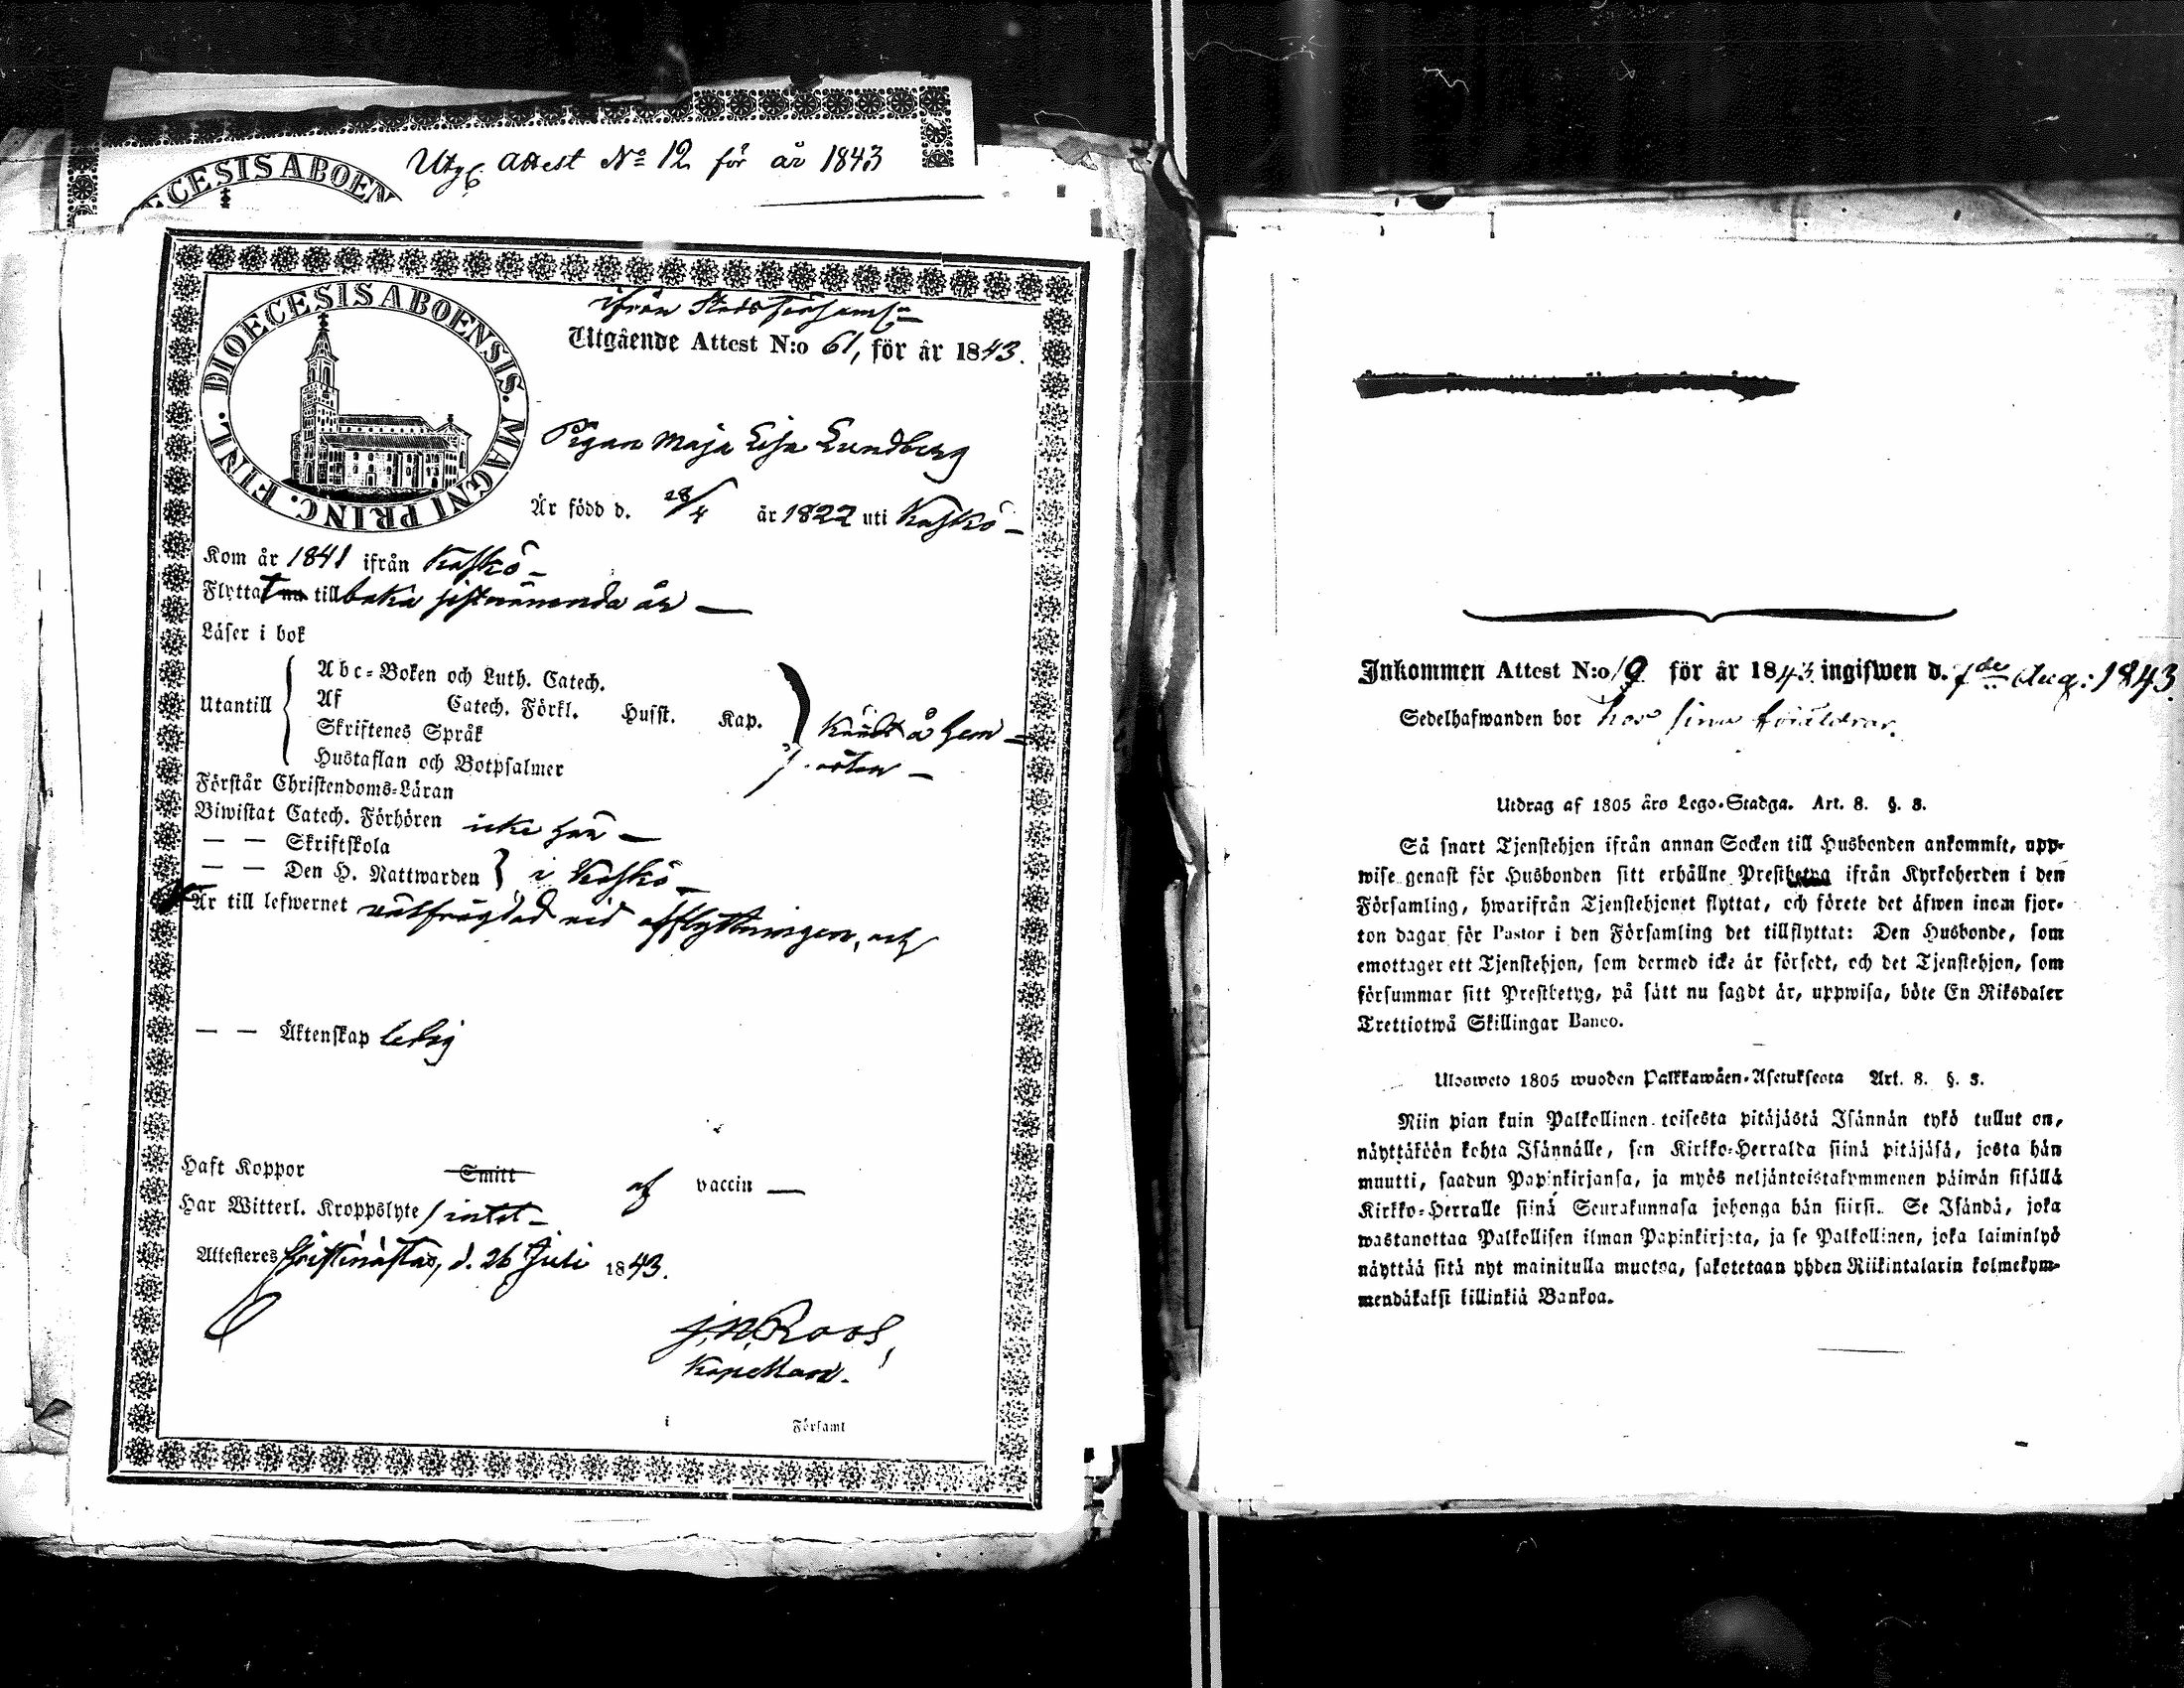 Utg. Attest No 12 för år 1843
ECESIS ABOEN
DIOECESIS ABOENSIS. MAGNI PRINC. FINL.
ifrån Stadsförsaml:n
Utgående Attest N:o 61, för år 1843.
Pigan Maja Lisa Lundberg
Är född d. 28/4 år 1822 uti Kaskö
Kom år 1841 ifrån Kaskö
Flyttat tillbaka sistnämnda år
Läser i bok
Utantill
Abc-Boken och Luth. Catech.
Af Catech. Förkl. Husst. Kap.
Skriftenes Språk
Hustaflan och Botpsalmer
Kändt å hem
orten
Förstår Christendoms-Läran
Biwistat Catech. Förhören icke här
— — Skriftskola
— — Den H. Nattwarden } i Kaskö
Är till lefwernet välfrägdad vid afflyttningen, och
— — Äktenskap ledig
Haft Koppor Smitt af vaccin
Har Witterl. Kroppslyte intet
Attesteres Christinæstad, d. 26 Juli 1843.
J.N. Roos,
Kapellan.
i Församl
Inkommen Attest N:o 19 för år 1843 ingifwen d. 1de Aug: 1843
Sedelhafwanden bor hos sina föräldrar.
Utdrag af 1805 års Lego-Stadga. Art. 8. §. 8.
Så snart Tjenstehjon ifrån annan Socken till Husbonden ankommit, upp-
wise genast för Husbonden sitt erhållne Prestbetyg ifrån Kyrkoherden i den
Församling, hwarifrån Tjenstehjonet flyttat, och förete det äfwen inom fjor-
ton dagar för Pastor i den Församling det tillflyttat: Den Husbonde, som
emottager ett Tjenstehjon, som dermed icke är försedt, och det Tjenstehjon, som
försummar sitt Prestbetyg, på sätt nu sagdt är, uppwisa, böte En Riksdaler
Trettiotwå Skillingar Banco.
Ulosweto 1805 wuoden Palkkawäen-Asetuksesta Art. 8. §. 8.
Niin pian kuin Palkollinen toisesta pitäjästä Isännän tykö tullut on,
näyttäköön kohta Isännälle, sen Kirkko-Herralda siinä pitäjäsä, josta hän
muutti, saadun Papinkirjansa, ja myös neljäntoistakymmenen päiwän sisällä
Kirkko-Herralle siinä Seurakunnasa johonga hän siirsi. Se Isändä, joka
wastanottaa Palkollisen ilman Papinkirjata, ja se Palkollinen, joka laiminlyö
näyttää sitä nyt mainitulla muotoa, sakotetaan yhden Riikintalarin kolmekym-
mendäkaksi killinkiä Bankoa.